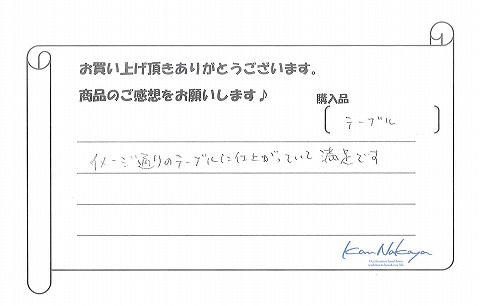 お買い上げ頂きありがとうございます。
商品のご感想をお願いします♪
購入品
テーブル
イメージ通りのテーブルに仕上がっていて満足です
KanNakaya